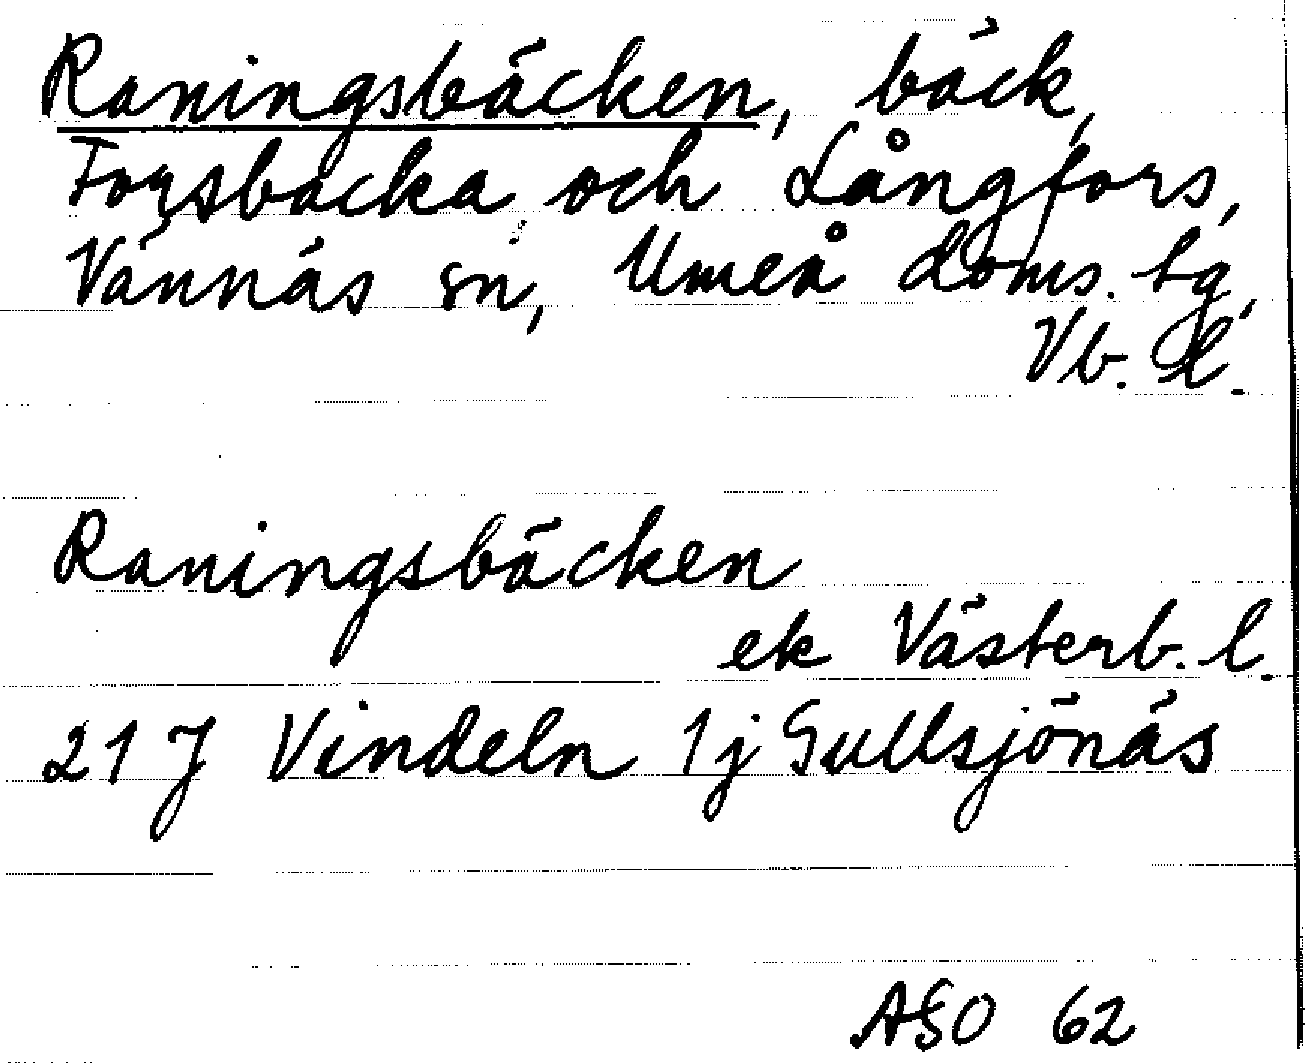 Raningsbäcken, bäck,
Forsbacka och Långfors,
Vännäs sn, Umeå doms. tg,
Vb. l.
Raningsbäcken
ek Västerb. l.
21 J Vindeln 1j Gullsjönäs
ASO 62